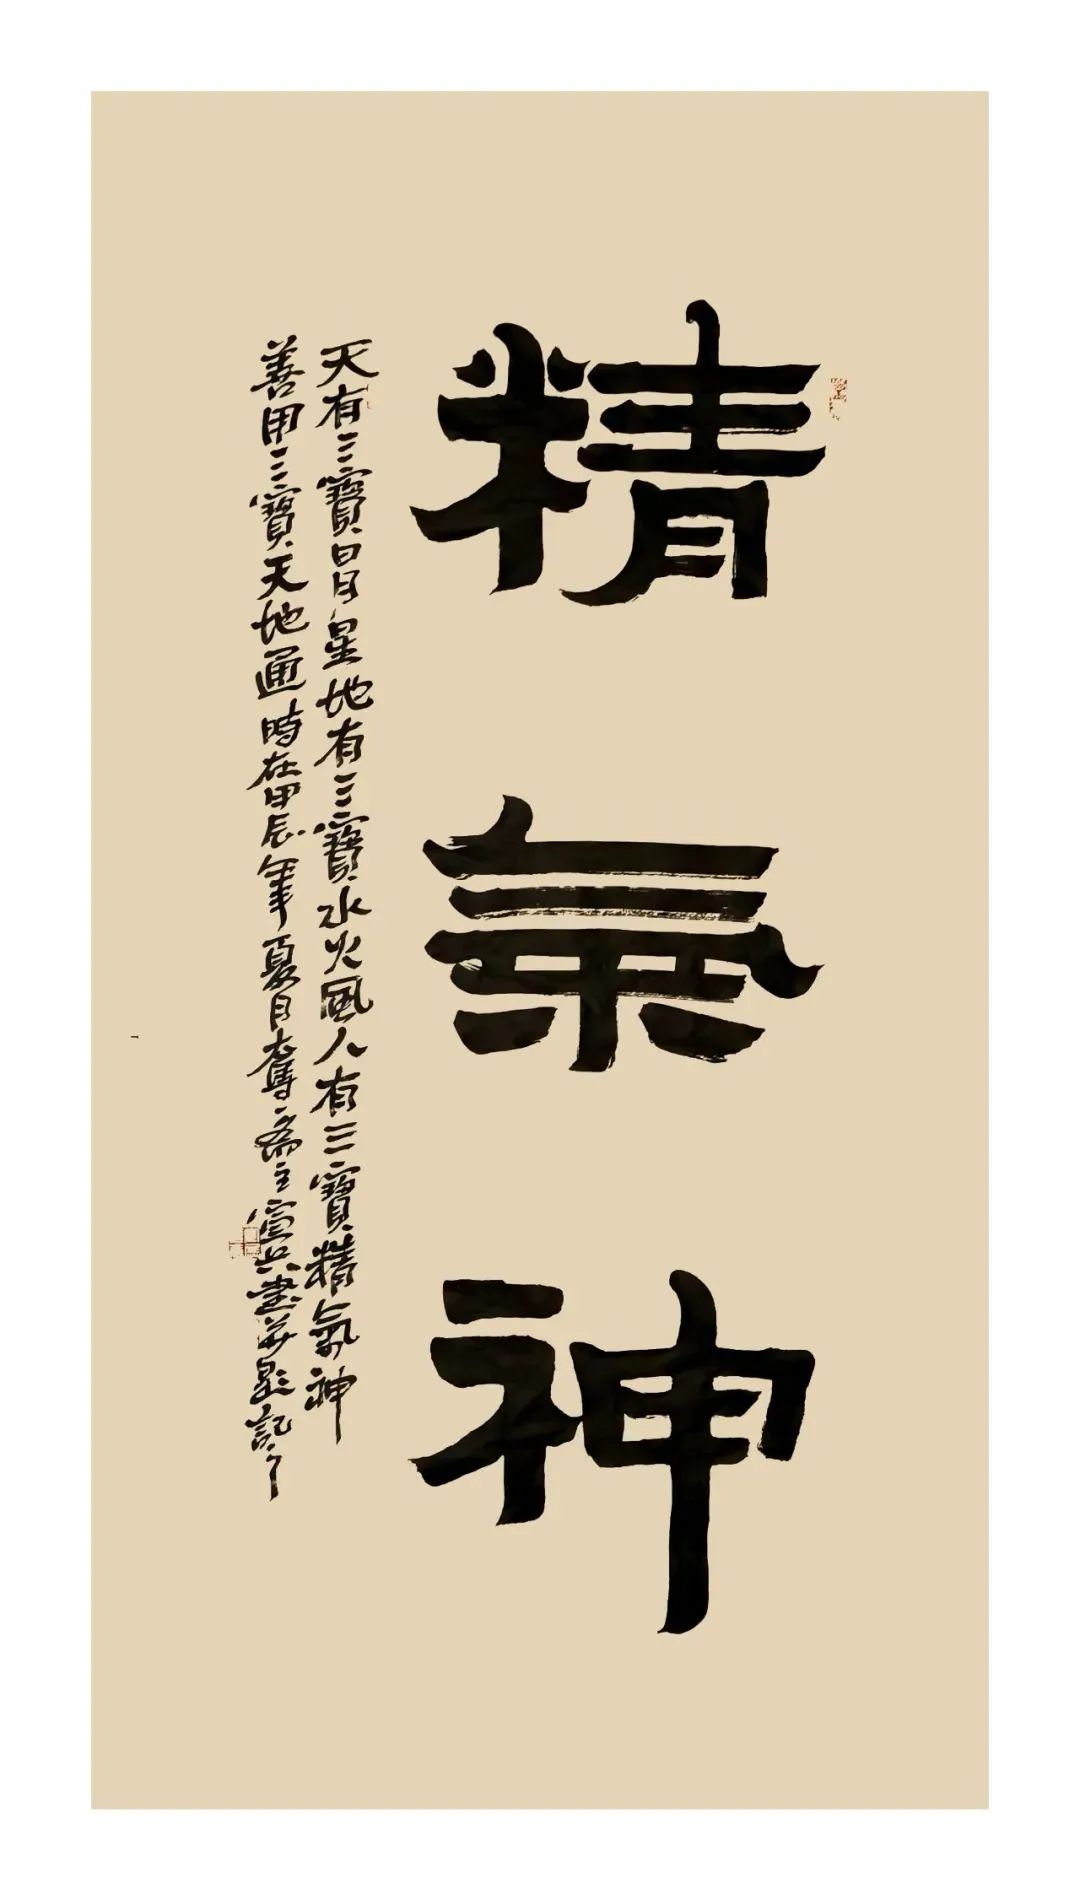 精氣神
天有三寶日月星地有三寶水火風人有三寶精氣神
善用三寶天地通時在甲辰年夏月奮齋主宣兵書并題記